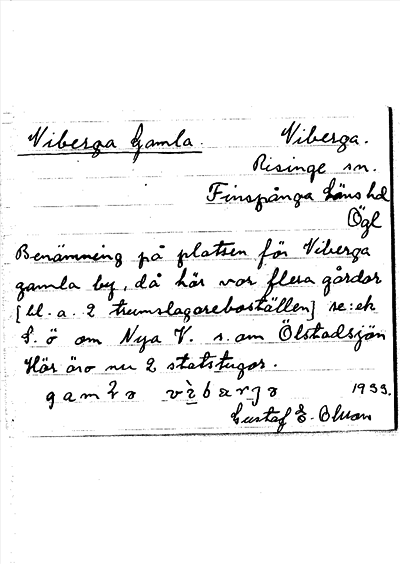 Viberga Gamla. Viberga.
Risinge sn.
Finspånga läns hd
Ögl
Benämning på platsen för Viberga
gamla by, då här var flera gårdar
[bl. a. 2 trumslagareboställen] se: ek
S. ö om Nya V. s. om Ölstadsjön
Här äro nu 2 statstugor.
1933.
Gustaf E. Olsson